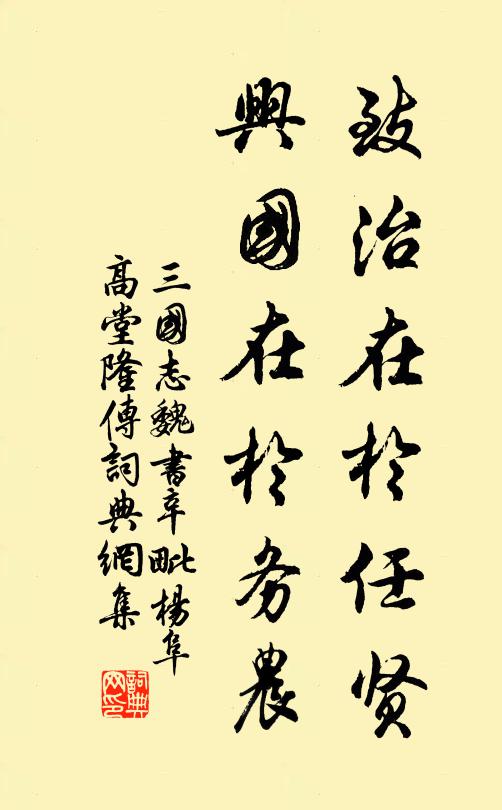 致治在於任贤
興國在於务農
三國志魏書辛毗楊阜
高堂隆傳詞典網集
詞典网印